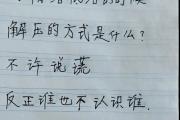 解压的方式是什么?
不许说谎
反正谁也不认识谁.